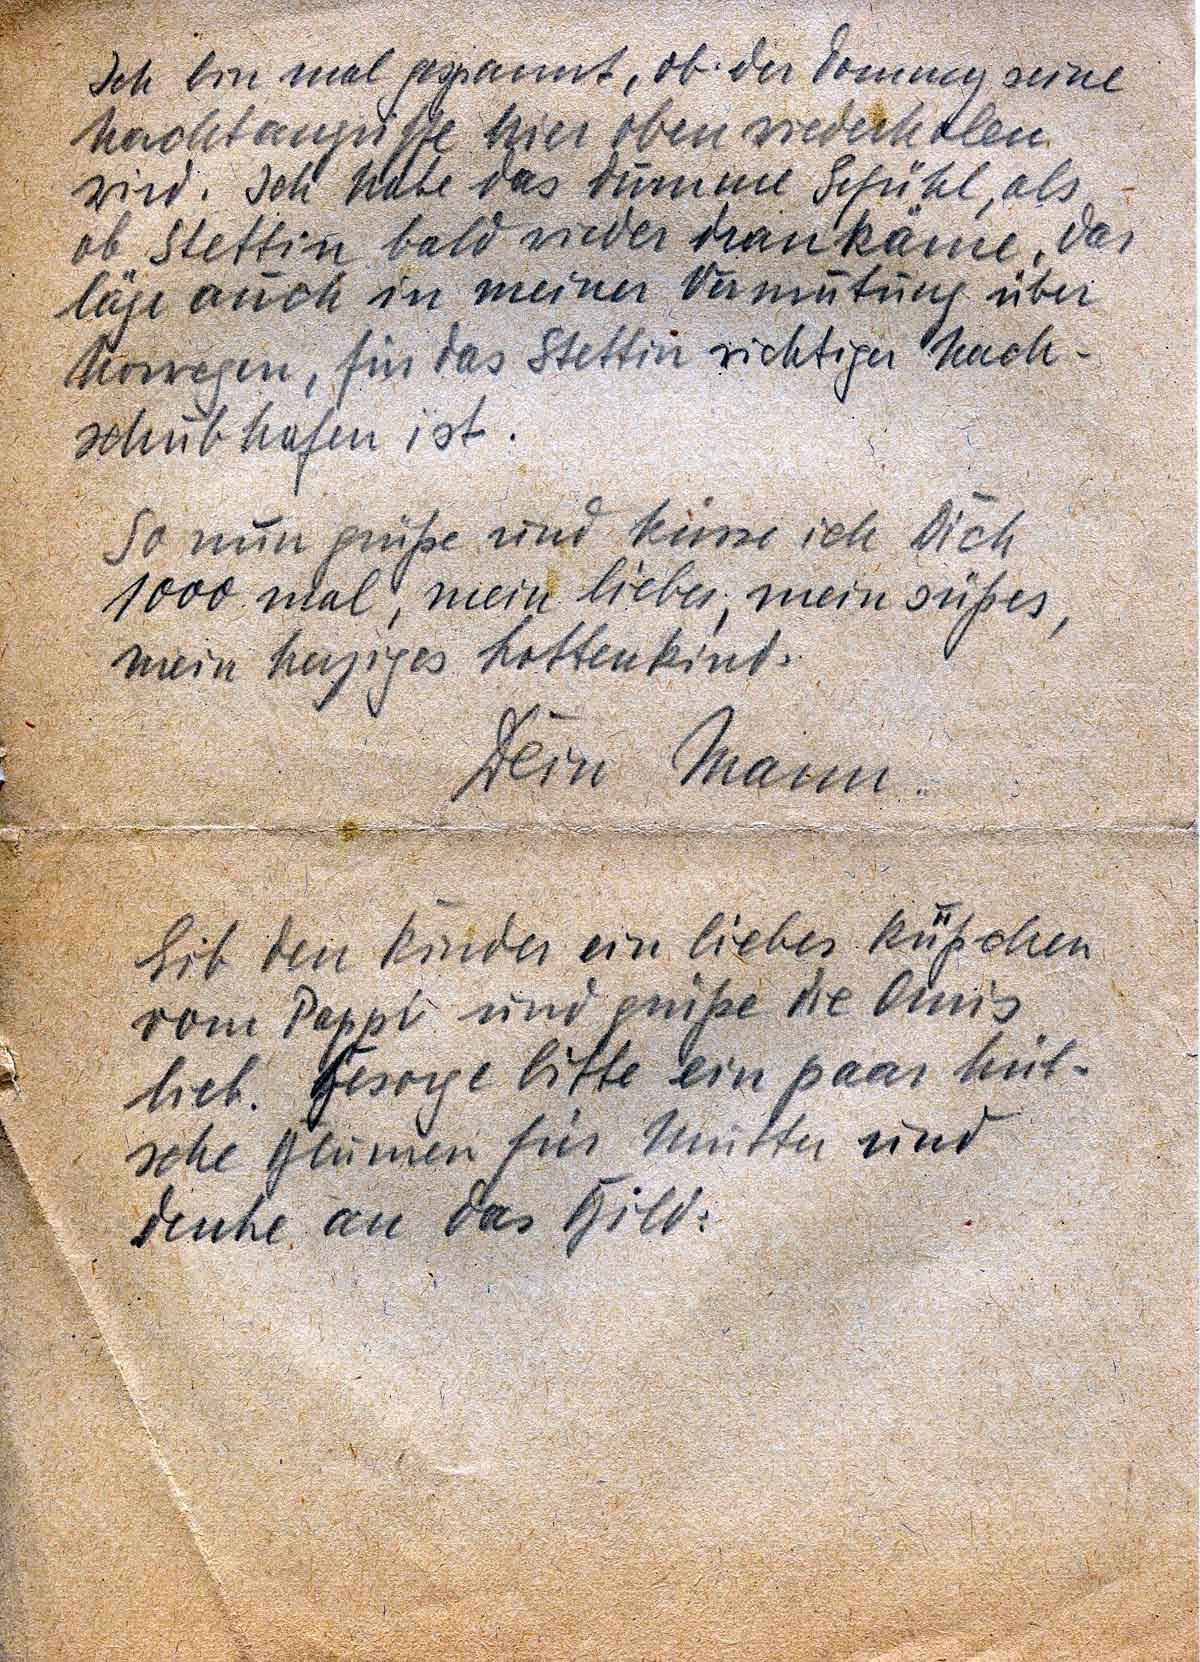 Ich bin mal gespannt, ob der Tommy seine
Nachtangriffe hier oben wiederholen
wird. Ich habe das dumme Gefühl, als
ob Stettin bald wieder drankäme, das
läge auch in meiner Vermutung über
Norwegen, für das Stettin wichtiger Nach-
schubhafen ist.
So nun grüße und küsse ich Dich
1000 mal, mein liebes, mein süßes,
mein herziges Lottenkind.
Dein Mann.
Gib den Kinder ein liebes Küßchen
vom Pappi und grüße die Omis
lieb. Besorge bitte ein paar hüb-
sche Blumen für Mutter und
denke an das Bild.